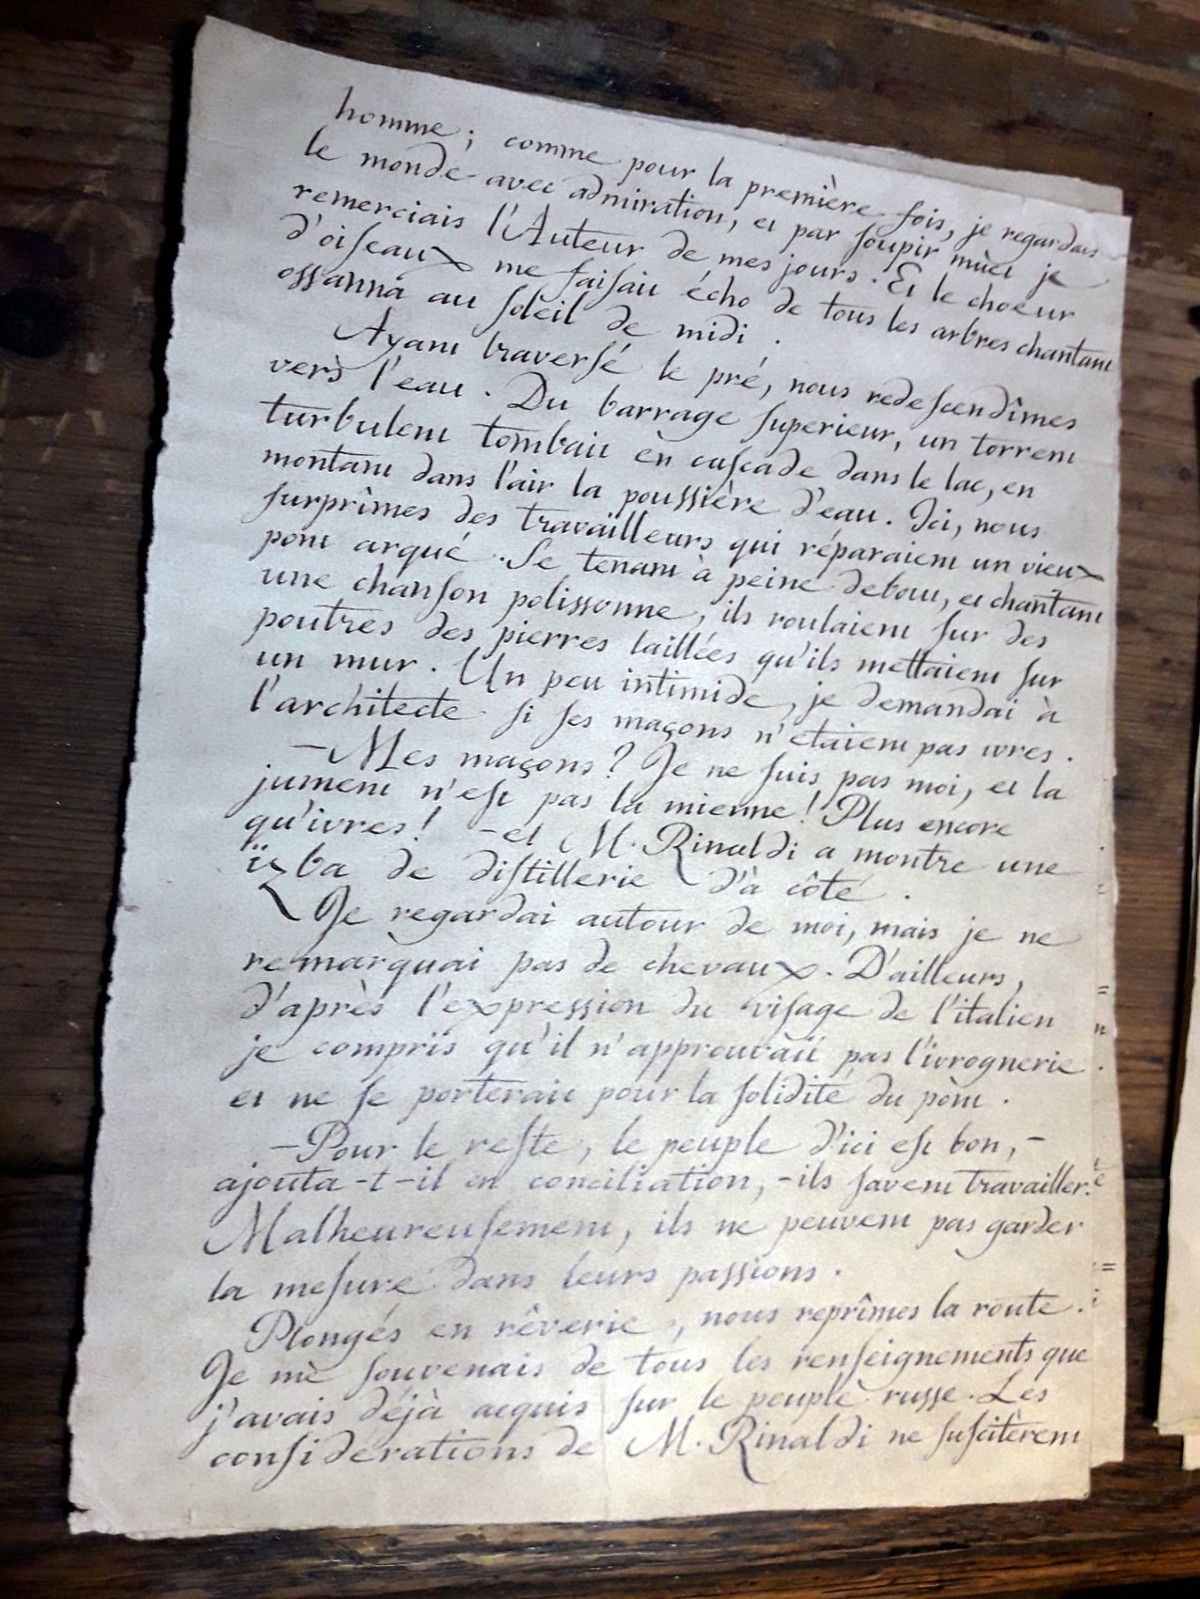 homme; comme pour la première fois, je regardais
le monde avec admiration, et par soupir muet je
remerciais l'Auteur de mes jours. Et le choeur
d'oiseaux me faisait écho de tous les arbres chantant
ossanna au soleil de midi.
Ayant traversé le pré, nous redescendîmes
vers l'eau. Du barrage superieur, un torrent
turbulent tombait en cascade dans le lac, en
montant dans l'air la poussière d'eau. Ici, nous
surprîmes des travailleurs qui réparaient un vieux
pont arqué. Se tenant à peine debout, et chantant
une chanson polissonne, ils roulaient sur des
poutres des pierres taillées qu'ils mettaient sur
un mur. Un peu intimide, je demandai à
l'architecte si ses maçons n'etaient pas ivres.
—Mes maçons? Je ne suis pas moi, et la
jument n'est pas la mienne! Plus encore
qu'ivres! -et M. Rinaldi a montre une
ïzba de distillerie d'à côté.
Je regardai autour de moi, mais je ne
remarquai pas de chevaux. D'ailleurs,
d'après l'expression du visage de l'italien
je compris qu'il n'approuvait pas l'ivrognerie
et ne se porterait pour la solidité du pont.
—Pour le reste, le peuple d'ici est bon,-
ajouta-t-il en conciliation, -ils savent travailler.
Malheureusement, ils ne peuvent pas garder
la mesure dans leurs passions.
Plongés en rêverie, nous reprîmes la route.
Je me souvenais de tous les renseignements que
j'avais déjà acquis sur le peuple russe. Les
considérations de M. Rinaldi ne suscitèrent